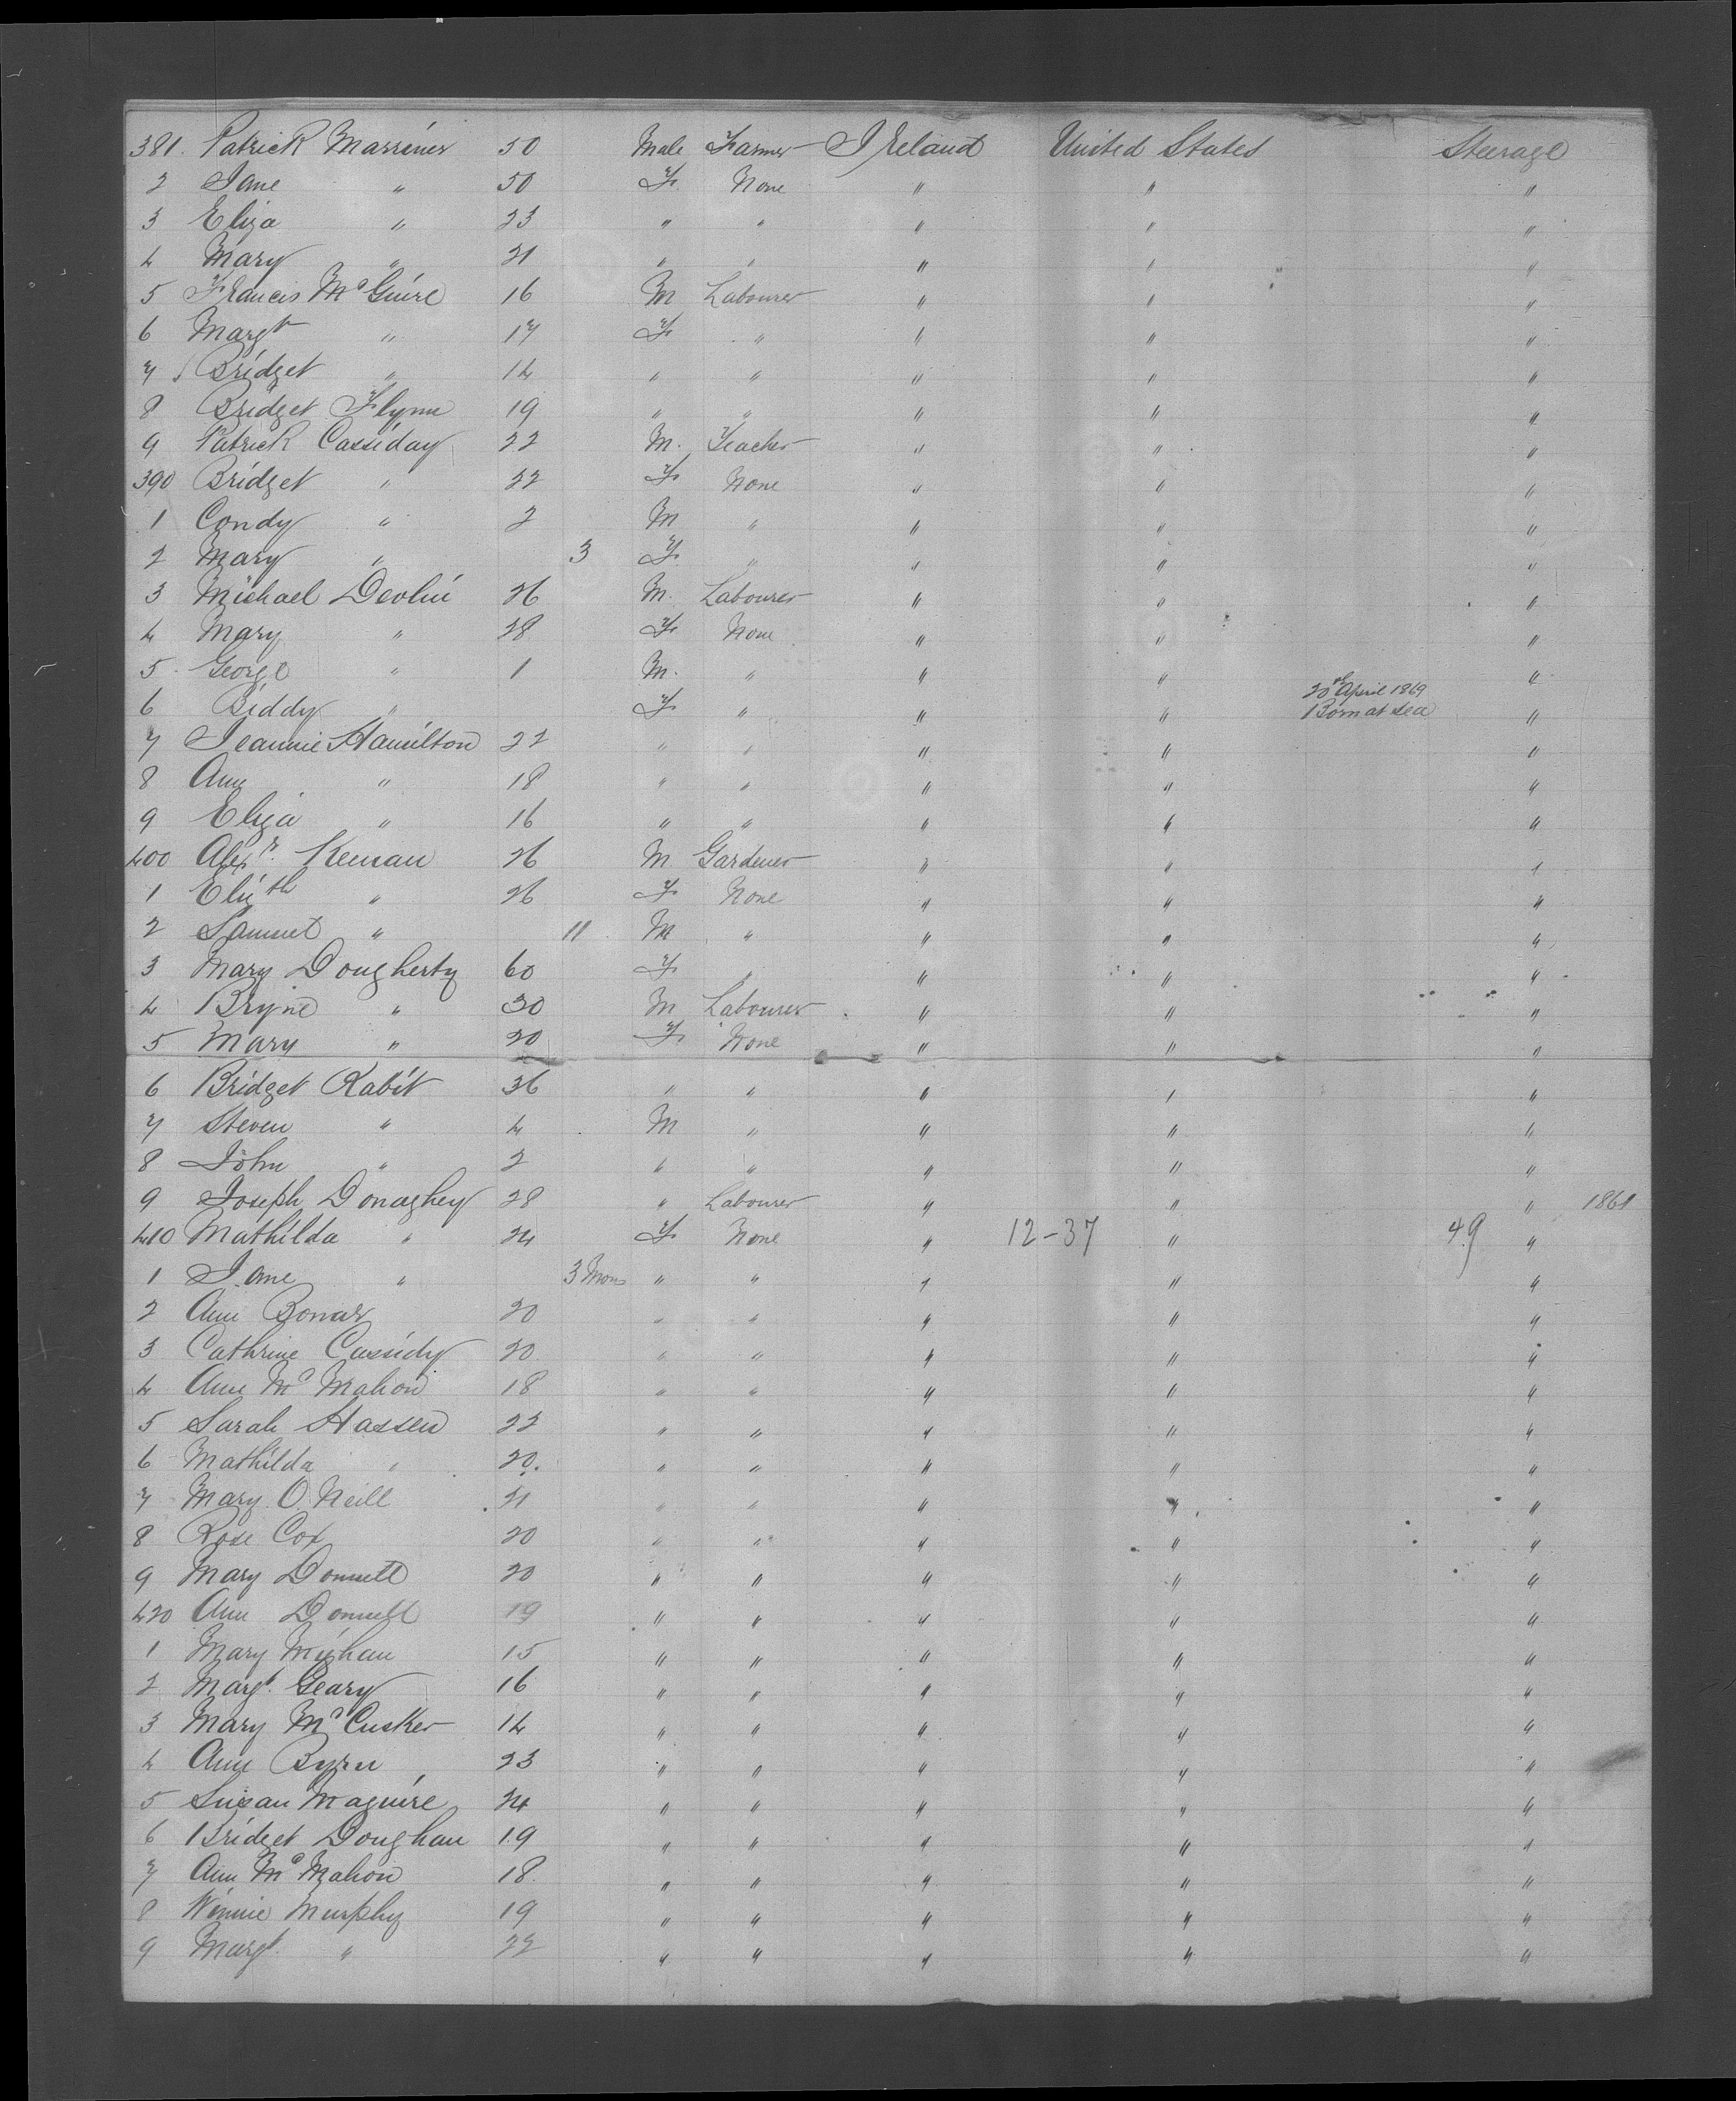 381. Patrick Marriner 50 Male Farmer Ireland United States Steerage
2 Jane " 50 F. None " " "
3 Eliza " 23 " " " " "
4 Mary " 21 " " " " "
5 Francis McGuire 16 M Labourer " " "
6 Margt " 17 F " " " "
7 Bridget " 14 " " " " "
8 Bridget Flynn 19 " " " " "
9 Patrick Cassiday 22 M. Teacher " " "
390 Bridget " 22 F None " " "
1 Condy " 2 M " " " "
2 Mary " 3 F. " " " "
3 Michael Devlin 26 M. Labourer " " "
4 Mary " 28 F None " " "
5 George " 1 M. " " " "
6 Biddy " F " " " 20th April 1869 Born at Sea "
7 Jeannie Hamilton 22 " " " " "
8 Ann " 18 " " " " "
9 Eliza " 16 " " " " "
400 Alexr. Keenan 26 M Gardener " " "
1 Elizth " 26 F None " " "
2 Samuel " 11 M " " " "
3 Mary Dougherty 60 F " " " "
4 Bryne " 30 M Labourer " " "
5 Mary " 20 F None " " "
6 Bridget Rabit 36 " " " " "
7 Steven " 4 M " " " "
8 John " 2 " " " " "
9 Joseph Donaghey 28 " Labourer " " " 1861
410 Mathilda " 24 F None " 12-37 " 49 "
1 Jane " 3 Mons " " " " "
2 Ann Bonar 20 " " " " "
3 Cathrine Cassidy 20 " " " " "
4 Ann McMahon 18 " " " " "
5 Sarah Hassen 22 " " " " "
6 Mathilda " 20. " " " " "
7 Mary O.Neill 21 " " " " "
8 Rose Cox 20 " " " " "
9 Mary Donnell 20 " " " " "
420 Ann Donnell 19 " " " " "
1 Mary Mighan 15 " " " " "
2 Margt. Geary 16 " " " " "
3 Mary McCusker 14 " " " " "
4 Ann Byrn 23 " " " " "
5 Susan Maguire 24 " " " " "
6 Bridget Doughan 19 " " " " "
7 Ann McMahon 18. " " " " "
8 Winnie Murphy 19 " " " " "
9 Margt. " 22 " " " " "